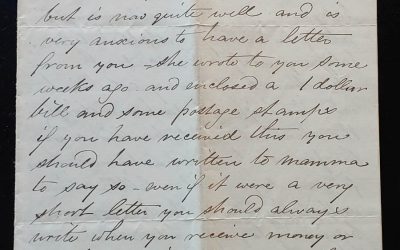 but is now quite well and is
very anxious to have a letter
from you - she wrote to you some
weeks ago - and enclosed a 1 dollar
bill and some postage stamps
if you have received this you
should have written to mamma
to say so - even if it were a very
short letter you should always
write when you receive money or